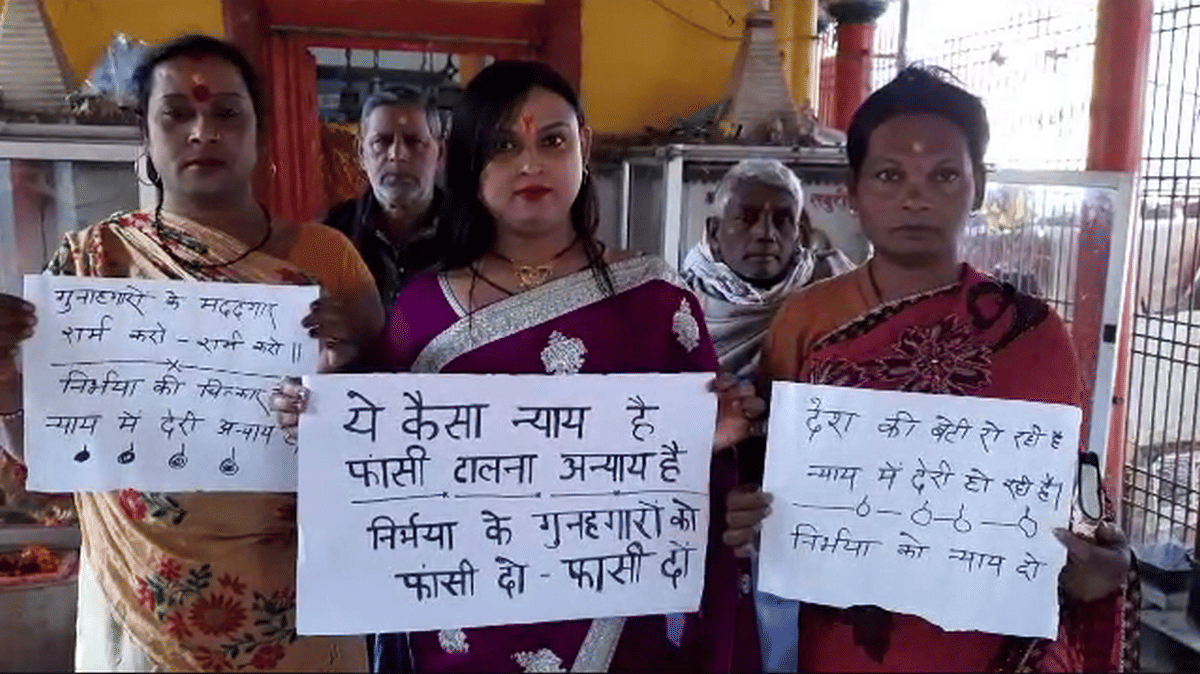 गुनाहगारो के मददगार
शर्म करो - शर्म करो ॥
निर्भया की चित्कार
न्याय में देरी अन्याय है
ये कैसा न्याय है
फांसी टालना अन्याय है
निर्भया के गुनहगारों को
फांसी दो - फांसी दों
देश की बेटी रो रही है
न्याय में देरी हो रही है।
निर्भया को न्याय दो